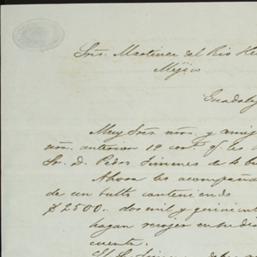 Sres. Martinez del Rio He
Mejico
Guadala
Muy Sres. nos. y amig
nos. anterior 12
Sr. D. Pedro Jimenes de
Ahora les acompaña
de un bulto conteniendo
$2500. dos mil y quinient
hagan recojer
cuenta.